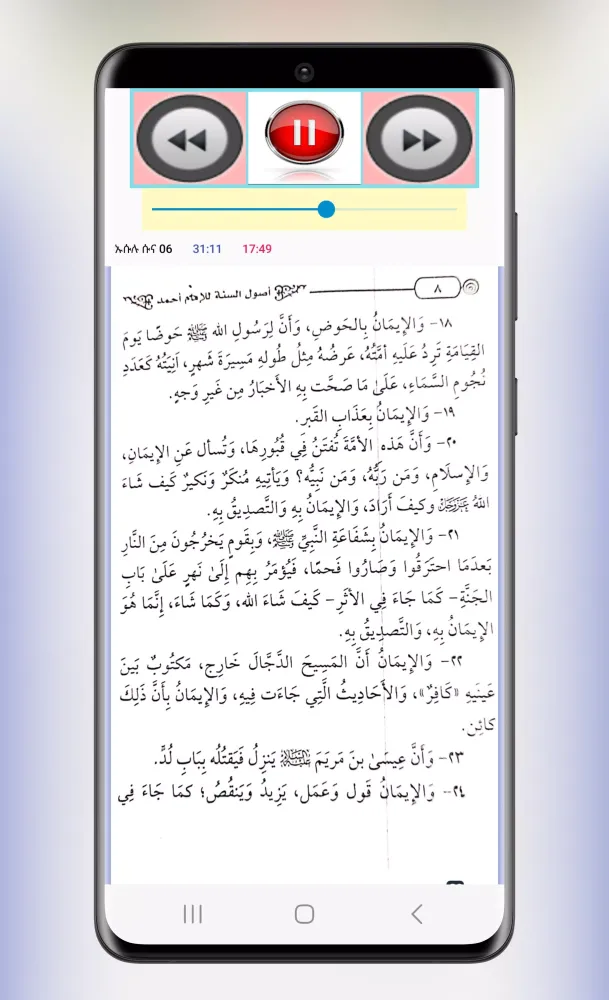 ኡሱሉ ሱና 06 31:11 17:49
٨ أصول السنة للإمام أحمد
١٨- وَالإِيمَانُ بِالحَوضِ، وَأَنَّ لِرَسُولِ الله ﷺ حَوضًا يَومَ
القِيَامَةِ تَرِدُ عَلَيهِ أُمَّتُهُ، عَرضُهُ مِثلُ طُولِهِ مَسِيرَةَ شَهرٍ، آنِيَتُهُ كَعَدَدِ
نُجُومِ السَّمَاءِ، عَلَىٰ مَا صَحَّت بِهِ الأَخبَارُ مِن غَيرِ وَجهٍ.
١٩- وَالإِيمَانُ بِعَذَابِ القَبرِ.
٢٠- وَأَنَّ هَذه الأُمَّةَ تُفتَنُ فِي قُبُورِهَا، وَتُسأل عَنِ الإِيمَانِ،
وَالإِسلَامِ، وَمَن رَبُّهُ، وَمَن نَبِيُّه؟ وَيَأتِيهِ مُنكَرٌ وَنَكيرٌ كَيف شَاءَ
اللهُ عَزَّوَجَلَّ وكيفَ أَرَادَ، وَالإِيمَانُ بِهِ وَالتَّصدِيقُ بِهِ.
٢١- وَالإِيمَانُ بِشَفَاعَةِ النَّبِيِّ ﷺ، وَبِقَومٍ يَخرُجُونَ مِنَ النَّارِ
بَعدَمَا احتَرَقُوا وَصَارُوا فَحمًا، فَيُؤمَرُ بِهِم إِلَىٰ نَهرٍ عَلَىٰ بَابِ
الجَنَّةِ- كَمَا جَاءَ فِي الأَثَرِ- كَيفَ شَاءَ الله، وَكَمَا شَاءَ، إِنَّمَا هُوَ
الإِيمَانُ بِهِ، وَالتَّصدِيقُ بِهِ.
٢٢- وَالإِيمَانُ أَنَّ المَسِيحَ الدَّجَّالَ خَارِج، مَكتُوبٌ بَينَ
عَينَيهِ «كَافِرٌ»، وَالأَحَادِيثُ الَّتِي جَاءَت فِيهِ، وَالإِيمَانُ بِأَنَّ ذَلِكَ
كائِن.
٢٣- وَأَنَّ عِيسَىٰ بنَ مَريَمَ عَلَيْهِ السَّلَامُ يَنزِلُ فَيَقتُلُه بِبَابِ لُدٍّ.
٢٤- وَالإِيمَانُ قَول وَعَمَل، يَزِيدُ وَيَنقُصُ؛ كمَا جَاءَ فِي